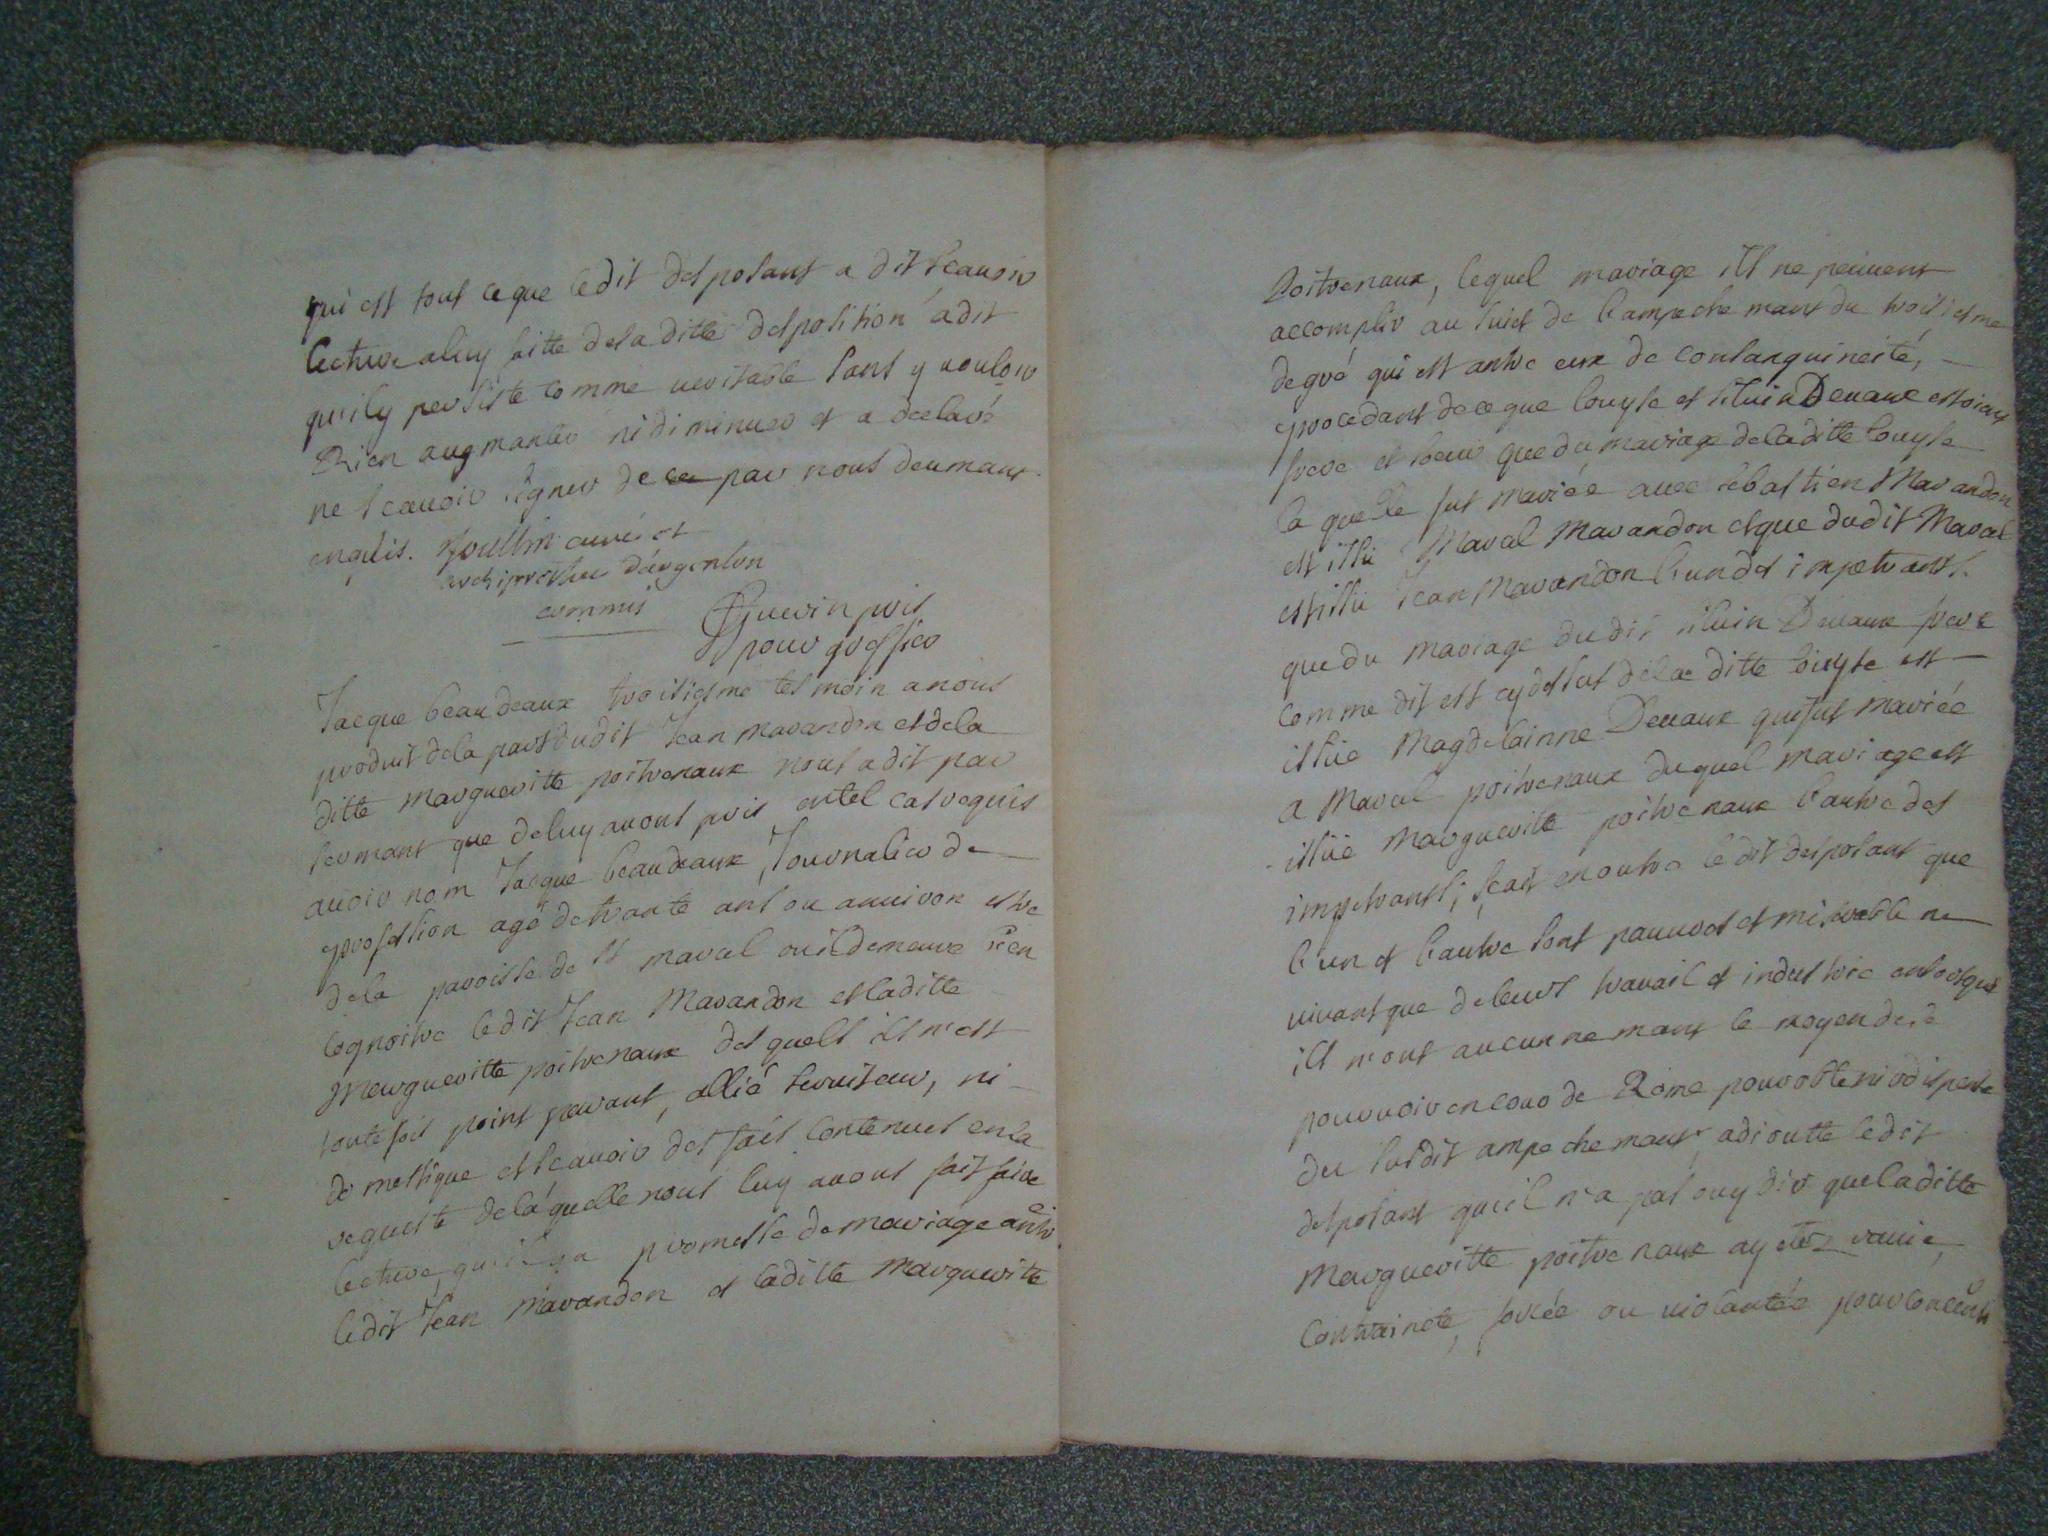 qui est tout ce que ledit desposant a dit scauoir
lecture aluy faitte dela ditte desposition a dit
quily persiste comme ueritable sans y uouloir
Rien augmanter ni diminuer et a declaré
ne scauoir signer de ce par nous deumant
enquis. curé et
archiprestre dargenton
commis
Guerin pris
pour greffier
Jacque beaudeaux troisiesme tesmoin a nous
produit dela part dudit Jean marandon et dela
ditte margueritte poitrenaux nous a dit par
sermant que deluy auons pris en tel cas requis
auoir nom Jacque beaudeaux, Journalier de
profession agé de trante ans ou anuiron estre
dela paroisse de st maral ou il demeure bien
cognoitre ledit Jean Marandon et laditte
Margueritte poitrenaux des quels il n'est
toutefois point parant, allié seruiteur, ni
domestique et scauoir des fais contenus en la
requeste de laquelle nous luy auons fait faire
lecture, qu'il y a promesse de mariage antr
ledit Jean Marandon et laditte Marguerite
Poitrenaux, lequel mariage ils ne peuuent
accomplir au suiet de l'ampechemant du troisiesme
degré qui est antre eux de consanguineité,
procedant de ce que louyse et siluin Deuaux estoiant
frere et soeur que du mariage dela ditte louyse
la quelle fut mariée auec sebastien Marandon
est issu Maral Marandon et que dudit Maral
est issu Jean Marandon l'un des impetrants.
que du mariage dudit siluin Deuaux frere
comme dit est cy dessus dela ditte louyse est
issüe Magdelainne Deuaux qui fut mariée
a Maral poitrenaux duquel mariage est
issüe Marguerite poitrenaux l'autre des
impetrants; scait en outre ledit desposant que
l'un et l'autre sont pauures et miserable ne
uiuant que deleurs trauail et industrie ensorsque
ils n'ont aucunnemant le moyen de se
pouruoir en cour de Rome pour obtenir dispense
du susdit ampechemant, adioutte ledit
desposant qu'il n'a pas ouy dir que laditte
Margueritte poitrenaux ay ete rauie,
contrainete, forcée ou uiolantée pour consentir